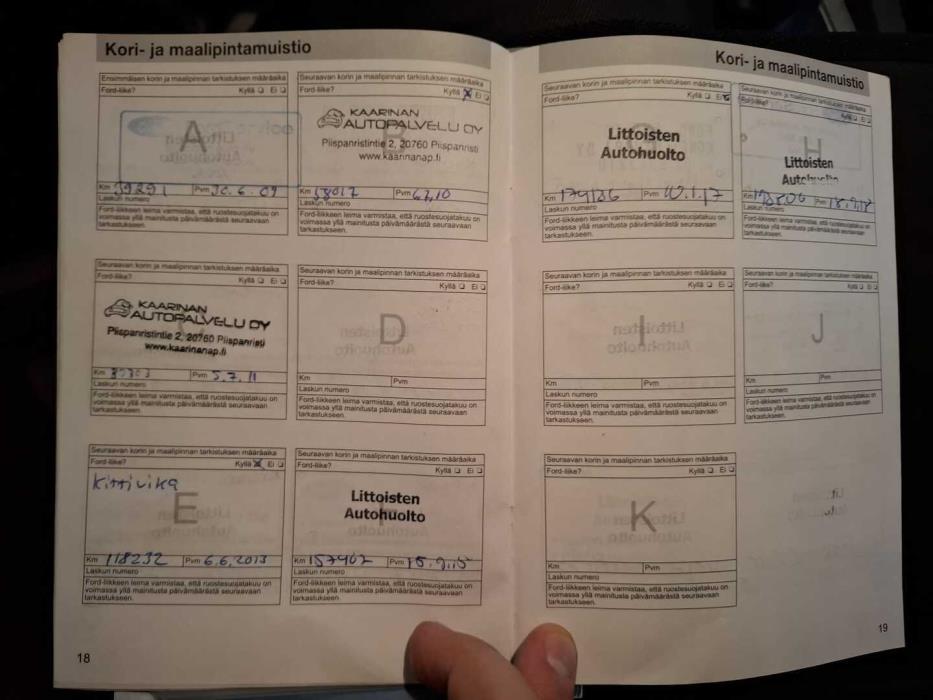 Kori- ja maalipintamuistio
Ensimmäisen korin ja maalipinnan tarkistuksen määräaika
Ford-liike? Kyllä ❑ Ei ❑
A
Km 39291 Pvm 30.6.09
Laskun numero
Ford-liikkeen leima varmistaa, että ruostesuojatakuu on
voimassa yllä mainitusta päivämäärästä seuraavaan
tarkastukseen.
Seuraavan korin ja maalipinnan tarkistuksen määräaika
Ford-liike? Kyllä ☒ Ei ❑
KAARINAN
AUTOPALVELU OY
Piispanristintie 2, 20760 Piispanristi
www.kaarinanap.fi
B
Km Pvm
Laskun numero
Ford-liikkeen leima varmistaa, että ruostesuojatakuu on
voimassa yllä mainitusta päivämäärästä seuraavaan
tarkastukseen.
Seuraavan korin ja maalipinnan tarkistuksen määräaika
Ford-liike? Kyllä ❑ Ei ❑
KAARINAN
AUTOPALVELU OY
Piispanristintie 2, 20760 Piispanristi
www.kaarinanap.fi
C
Km Pvm 5.7.11
Laskun numero
Ford-liikkeen leima varmistaa, että ruostesuojatakuu on
voimassa yllä mainitusta päivämäärästä seuraavaan
tarkastukseen.
Seuraavan korin ja maalipinnan tarkistuksen määräaika
Ford-liike? Kyllä ❑ Ei ❑
D
Km Pvm
Laskun numero
Ford-liikkeen leima varmistaa, että ruostesuojatakuu on
voimassa yllä mainitusta päivämäärästä seuraavaan
tarkastukseen.
Seuraavan korin ja maalipinnan tarkistuksen määräaika
Ford-liike? Kyllä ☒ Ei ❑
Kittivika
E
Km 118232 Pvm 6.6.2013
Laskun numero
Ford-liikkeen leima varmistaa, että ruostesuojatakuu on
voimassa yllä mainitusta päivämäärästä seuraavaan
tarkastukseen.
Seuraavan korin ja maalipinnan tarkistuksen määräaika
Ford-liike? Kyllä ❑ Ei ❑
Littoisten
Autohuolto
F
Km 157402 Pvm 15.9.15
Laskun numero
Ford-liikkeen leima varmistaa, että ruostesuojatakuu on
voimassa yllä mainitusta päivämäärästä seuraavaan
tarkastukseen.
18
Kori- ja maalipintamuistio
Seuraavan korin ja maalipinnan tarkistuksen määräaika
Ford-liike? Kyllä ❑ Ei ☒
Littoisten
Autohuolto
Km 174136 Pvm
Laskun numero
Ford-liikkeen leima varmistaa, että ruostesuojatakuu on
voimassa yllä mainitusta päivämäärästä seuraavaan
tarkastukseen.
Seuraavan korin ja maalipinnan tarkistuksen määräaika
Ford-liike?
H
Littoisten
Autohuolto
Km Pvm
Laskun numero
Ford-liikkeen leima varmistaa, että ruostesuojatakuu on
voimassa yllä mainitusta päivämäärästä seuraavaan
tarkastukseen.
Seuraavan korin ja maalipinnan tarkistuksen määräaika
Ford-liike? Kyllä ❑ Ei ❑
I
Km Pvm
Laskun numero
Ford-liikkeen leima varmistaa, että ruostesuojatakuu on
voimassa yllä mainitusta päivämäärästä seuraavaan
tarkastukseen.
Seuraavan korin ja maalipinnan tarkistuksen määräaika
Ford-liike? Kyllä ❑ Ei ❑
J
Km Pvm
Laskun numero
Ford-liikkeen leima varmistaa, että ruostesuojatakuu on
voimassa yllä mainitusta päivämäärästä seuraavaan
tarkastukseen.
Seuraavan korin ja maalipinnan tarkistuksen määräaika
Ford-liike? Kyllä ❑ Ei ❑
K
Km Pvm
Laskun numero
Ford-liikkeen leima varmistaa, että ruostesuojatakuu on
voimassa yllä mainitusta päivämäärästä seuraavaan
tarkastukseen.
19